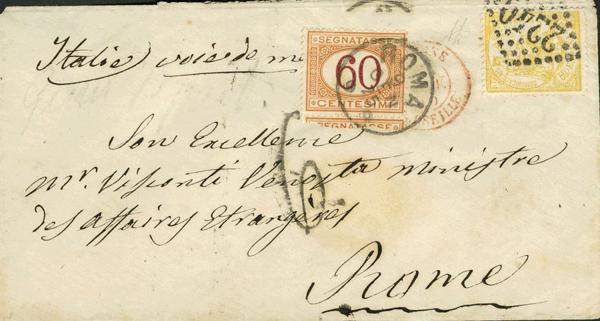 Italie voie de me
SEGNATASSE
60
CENTESIMI
SEGNATASSE
ROMA
2240
Son Excellence
Mr. Visconti Venosta ministre
des affaires Etrangères
Rome